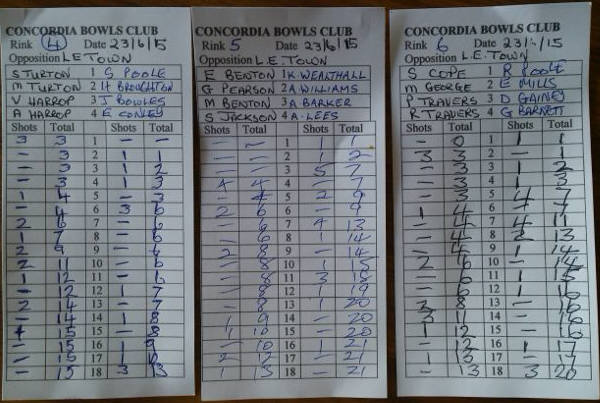 CONCORDIA BOWLS CLUB
Rink 4 Date 23/6/15
Opposition L.E TOWN
S TURTON 1 S POOLE
M TURTON 2 H BROUGHTON
V HARROP 3 J BOWLES
A HARROP 4 E CONLEY
Shots Total Shots Total
3 3 1 - -
- 3 2 1 1
- 3 3 1 2
- 3 4 1 3
1 4 5 - 3
- 4 6 3 6
2 6 7 - 6
1 7 8 - 6
2 9 9 - 6
2 11 10 - 6
1 12 11 - 6
- 12 12 1 7
2 14 13 - 7
- 14 14 1 8
1 15 15 - 8
- 15 16 1 9
- 15 17 1 10
- 15 18 3 13
CONCORDIA BOWLS CLUB
Rink 5 Date 23/6/15
Opposition L.E. TOWN
E BENTON 1 K WEALTHALL
G PEARSON 2 A WILLIAMS
M BENTON 3 A BARKER
S JACKSON 4 A. LEES
Shots Total Shots Total
- - 1 1 1
- - 2 1 2
- - 3 5 7
4 4 4 - 7
- 4 5 2 9
2 6 6 - 9
- 6 7 4 13
- 6 8 1 14
2 8 9 - 14
- 8 10 1 15
- 8 11 3 18
- 8 12 1 19
- 8 13 1 20
1 9 14 - 20
1 10 15 - 20
- 10 16 1 21
2 12 17 - 21
1 13 18 - 21
CONCORDIA BOWLS CLUB
Rink 6 Date 23/6/15
Opposition L.E. TOWN
S COPE 1 R POOLE
M GEORGE 2 E MILLS
P TRAVERS 3 D GAINEY
R TRAVERS 4 G BARNETT
Shots Total Shots Total
- 0 1 1 1
3 3 2 - 1
- 3 3 1 2
- 3 4 1 3
- 3 5 4 7
1 4 6 - 7
- 4 7 4 11
- 4 8 2 13
- 4 9 1 14
2 6 10 - 14
- 6 11 1 15
- 6 12 1 16
8 13 - 16
3 11 14 - 16
1 12 15 - 16
- 12 16 1 17
1 13 17 - 17
- 13 18 3 20